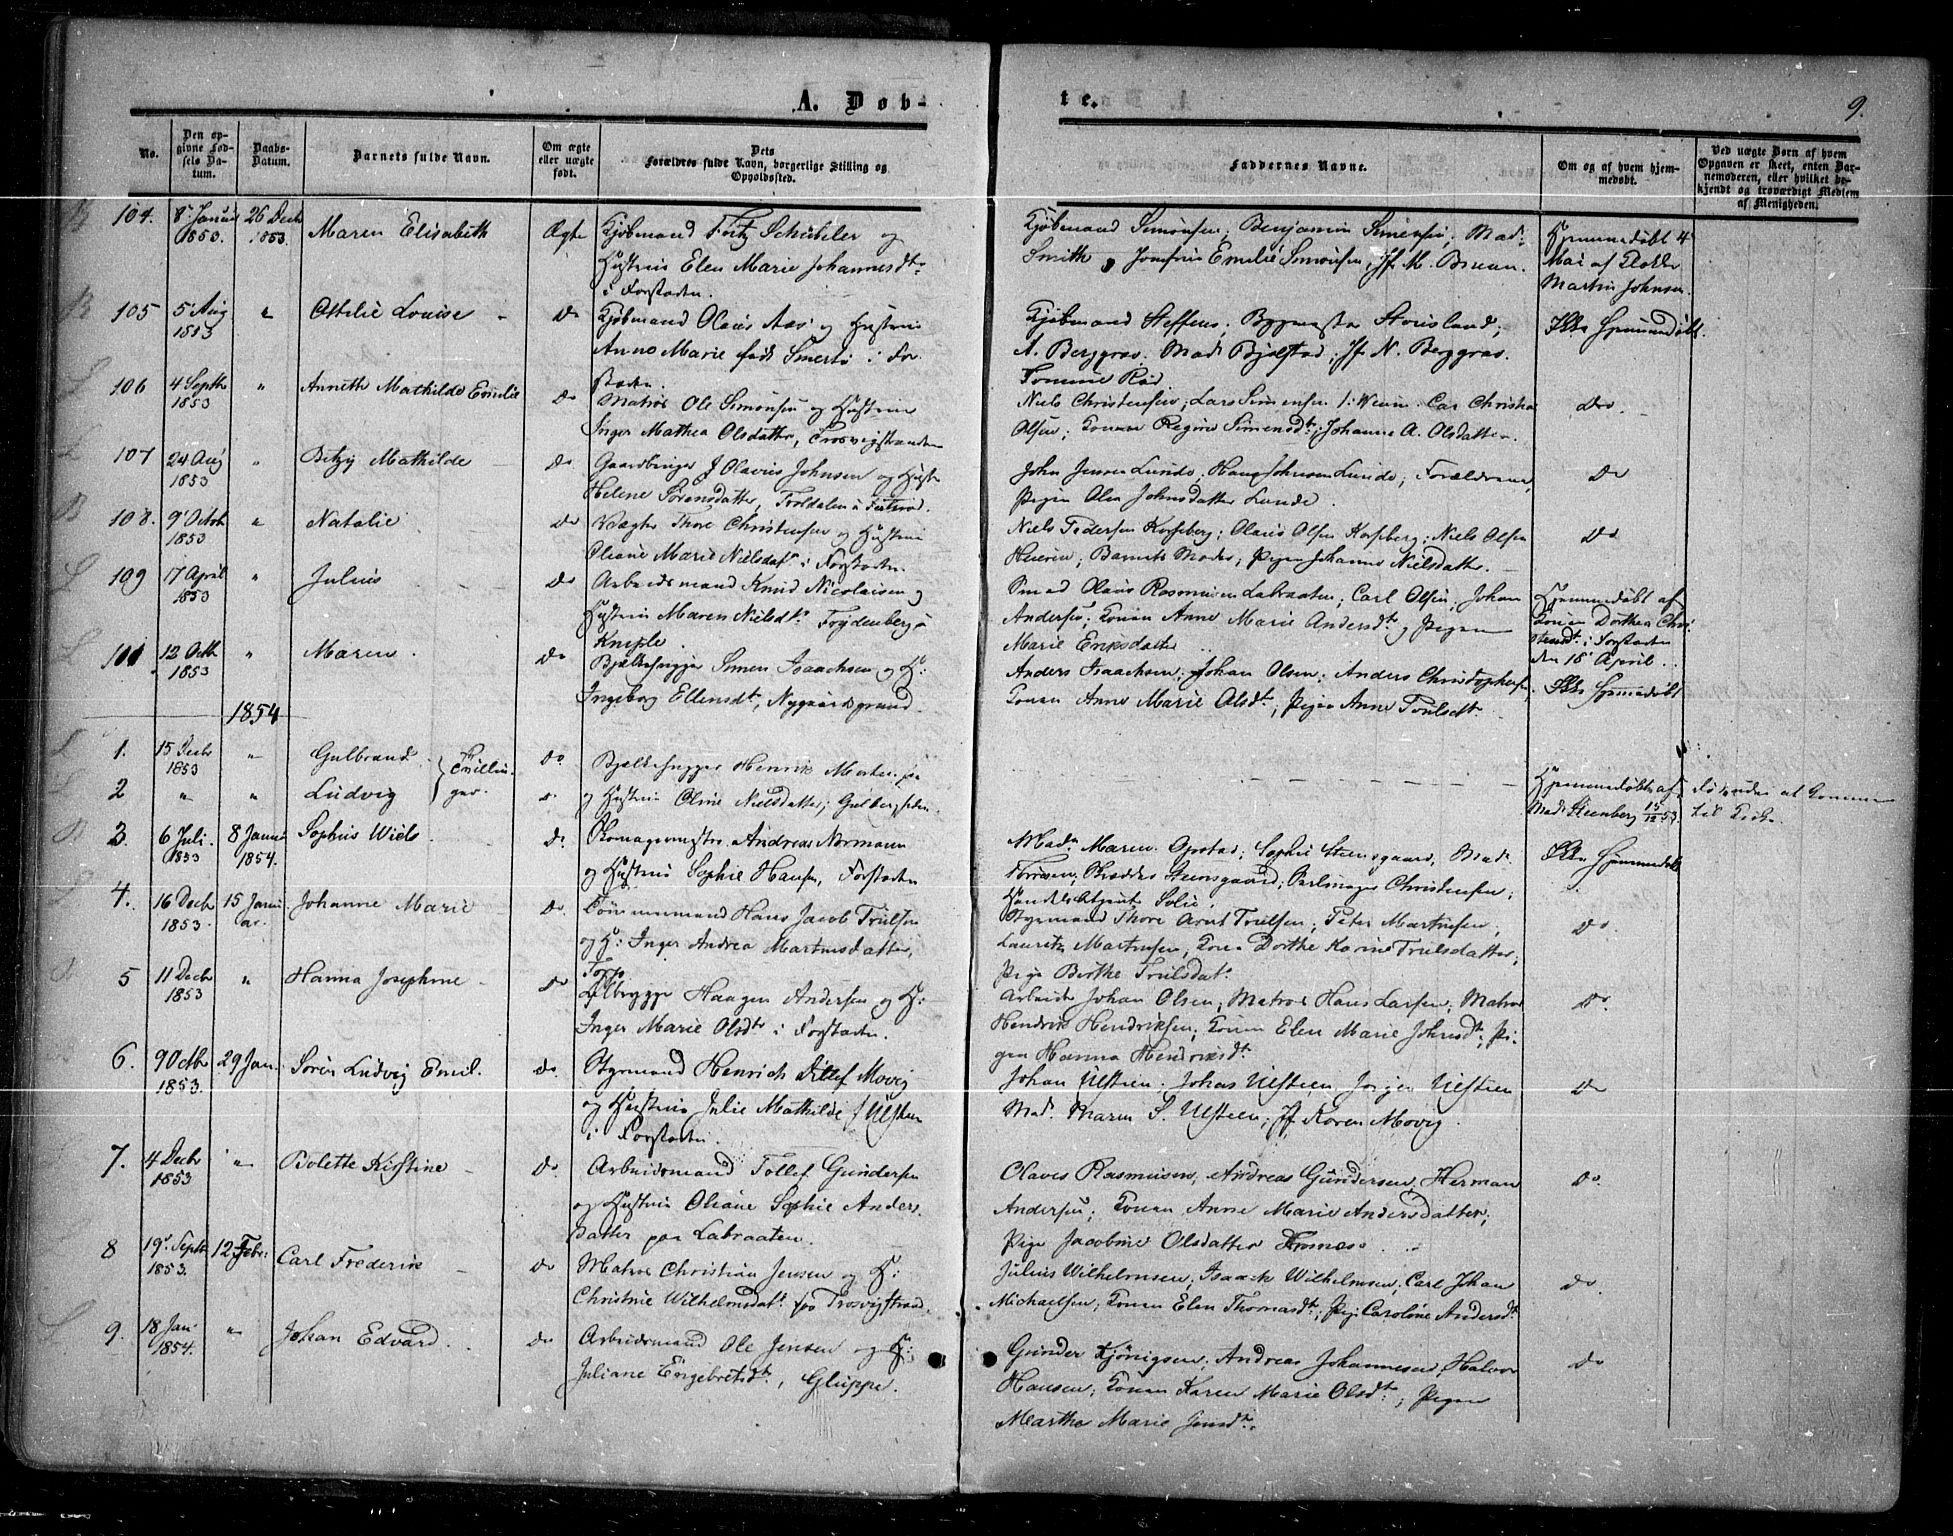 A. Døb-
te.
9.
No.
Den op-
givne Fød-
sels Da-
tum.
Daabs-
Datum.
Barnets fulde Navn.
Om ægte
eller uægte
født.
Dets
Forældres fulde Navn, borgerlige Stilling og
Opholdssted.
Faddernes Navne.
Om og af hvem hjem-
medøbt.
Ved uægte Børn af hvem
Opgaven er skeet, enten Bar-
nemoderen, eller hvilket be-
kjendt og troværdigt Medlem
af Menigheden.
104. 8' Januar 26 Decbr Maren Elisabeth Ægte Kjøbmand Fritz Schübeler og
1853. 1853.
Hustrue Elen Marie Johannesdtr
i Forstaden.
Kjøbmand Simonsen; Benjamin Simonsen; Mad:
Smith, Josefine Emilie Simonsen, Jf. M. Bruun.
Hjemmedøbt 4
Mai af Klokker
Martin Johnsen.
105 5 Aug " Ottilie Louise Do Kjøbmand Olaus Aas og Hustrue
1853
Anne Marie født i For
staden.
Kjøbmand Steffens; Bygmester
A. Berggrav. Mad. Bjølstad; Jf. N. Berggrav.
Ikke Hjemmedøbt.
106 4 Septbr " Anneth Mathilde Emilie Do Matros Ole Simonsen og Hustrue
1853
Inger Mathea Olsdatter, Trosvigstranden
Niels Christensen; Lars Simensen Carl Christian
Olsen; Konen Regine Simensdtr; Johanne A. Olsdatter.
Do.
107 24 Aug " Betzy Mathilde Do Gaardbruger J. Olavus Johnsen og Hustr
1853
Helene Sørensdatter, Troldalen i
John Jensen Lunde; Hans Johnsen Lunde; Forældrene,
Pigen Olea Johnsdatter Lunde.
Do
108. 9' Octob " Natalie Do Vægter Thore Christensen og Hustrue
1853
Oliane Marie Nielsdatr i Forstaden
Niels Pedersen Korseberg; Olaus Olsen Korseberg; Niels Olsen
Barnets Moder; Pigen Johanne Nielsdatter.
Do
109 17 April " Julius Do Arbeidsmand Knud Nicolaisen og
1853
Hustrue Maren Nielsdtr Frydenberg i
Kniple.
Smed Olaus Rasmusen Labraaten; Carl Olsen, Johan
Andersen; Konen Anne Marie Andersdtr og Pigen
Marie Eriksdatter
Hjemmedøbt af
Konen Dorthea Chri
stensdtr i Forstaden
den 18' April.
12 Octb " Maren Do Bjælkehugger Simen Isaachsen og H:
1853
Ingeborg Ellensdtr, Nygaardsgrund.
Anders Isaachsen; Johan Olsen; Anders Christophersen.
Konen Anne Marie Olsdtr; Pigen Anne Truelsdtr.
Ikke Hjemmedøbt
1854
1. 15 Decbr " Gulbrand Tvillin- Do Bjælkehugger Henrik Morten
1853
2 " " Ludvig ger. og Hustrue Oline Nielsdatter; Gulbergsiden
Hjemmedøbt af
Mad. Steenberg 15/12 53.
døde uden at komme
til Kirke.
3. 6 Juli 8 Januar Sophus Wiels Do. Andreas Normann
1853 1854.
og Hustrue Sophie Hansen, Forstaden
Madm Maren Opstad; Sophie Steensgaard, Mad.
Steensgaard; Christensen;
Handelsagent Solie.
Ikke Hjemmedøbt
4. 16 Decbr 15 Janu Johanne Marie Do. Tømmermand Hans Jacob Truelsen
1853. ar.
og H: Inger Andrea Martinusdatter,
Torp.
Styrmand Thore Arnt Truelsen; Peter Martinsen;
Lauritz Martinsen; Konen Dorthe Karine Truelsdatter;
Pige Berthe Truelsdatr
Do.
5 11 Decbr " Hanna Josephine Do Ølbrygger Haagen Andersen og H:
1853
Inger Marie Olsdtr i Forstaden.
Arbeider Johan Olsen; Matros Hans Larsen; Matros
Hendrik Hendriksen; Konen Elen Marie Johnsdtr; Pi-
gen Hanna Hendriksdtr
Do.
6. 9 Octbr 29 Jan. Søren Ludvig Emil. Do. Styrmand Henrich Ditlef Movig
1853.
og Hustrue Julie Mathilde f Ulsteen
i Forstaden.
Johan Ulsteen; Johas Ulsteen Jørgen Ulsteen
Mad. Maren S. Ulsteen; Jf. Karen Movig.
Do
7. 4 Decbr " Bolette Kirstine Do Arbeidsmand Tollef Gundersen
1853
og Hustrue Oliane Sophie Anders.
datter paa Labraaten.
Olaves Rasmusen, Andreas Gundersen, Herman
Andersen; Konen Anne Marie Andersdatter;
Pige Jacobine Olsdatter
Do.
8 19' Septbr 12 Febr: Carl Frederik Do Matros Christian Jensen og H:
1853.
Christine Wilhelmsdatr paa Trosvigstrand.
Julius Wilhelmsen; Isaack Wilhelmsen; Carl Johan
Michaelsen; Konen Elen Thomasdtr; Pige Caroline Andersdtr
Do
9. 18 Jan " Johan Edvard. Do Arbeidsmand Ole Jensen og H:
1854.
Juliane Engebretsdtr, Gluppe.
Gunder Kjønigsen; Andreas Johannesen; Halvor
Hansen; Konen Karen Marie Olsdtr; Pigen
Marthe Marie Jensdtr.
Do